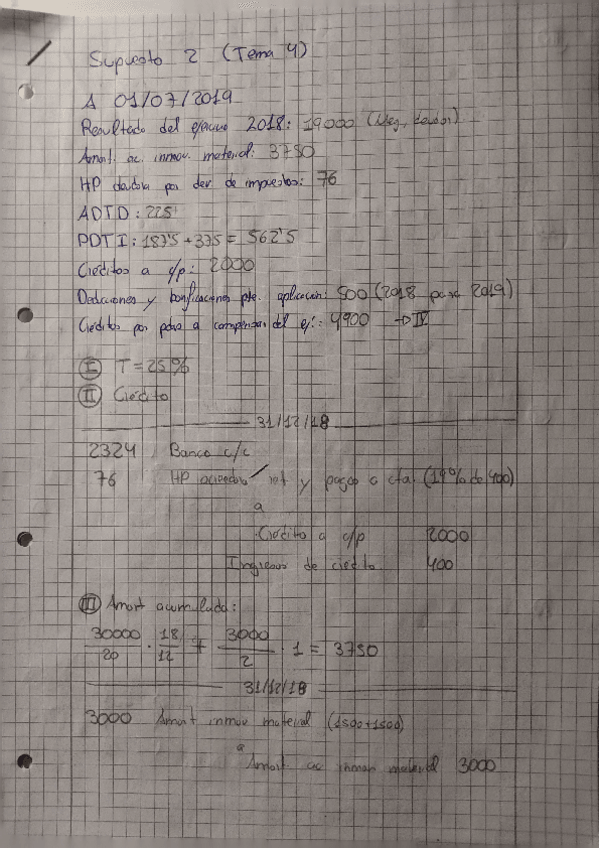 Supuesto 2 (Tema 4)
A 01/07/2019
Resultado del ejercicio 2018: 19000 (Neg, deudor)
Amort. ac. inmov. material: 3750
HP deudora por dev. de impuestos: 76
ADTD: 225
PDTI: 187'5 + 375 = 562'5
Créditos a c/p: 2000
Deducciones y bonificaciones pte. aplicación: 500 (2018 para 2019)
Créditos por pdas a compensar del ej.: 4900 → IV
I T = 25%
II Crédito
31/12/18
2324 Banco c/c
76 HP acreedora / ret y pagos a cta (19% de 400)
a
Crédito a c/p 2000
Ingresos de crédito 400
III Amort acumulada:
30000/20 · 18/12 + 3000/2 · 1 = 3750
31/12/18
3000 Amort inmov material (1500+1500)
a Amort. ac inmov material 3000